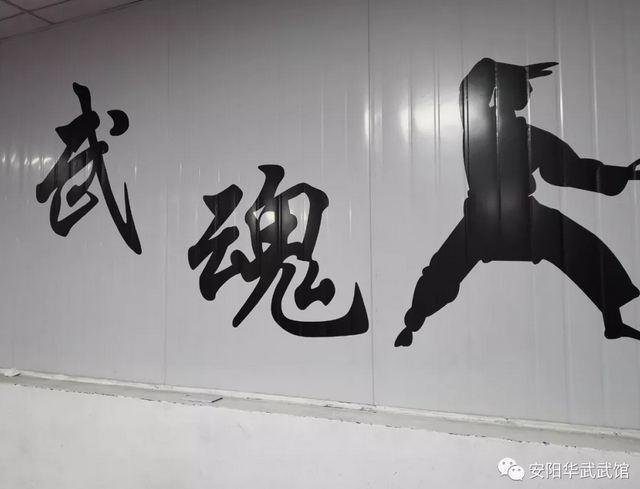 武魂
安阳华武武馆